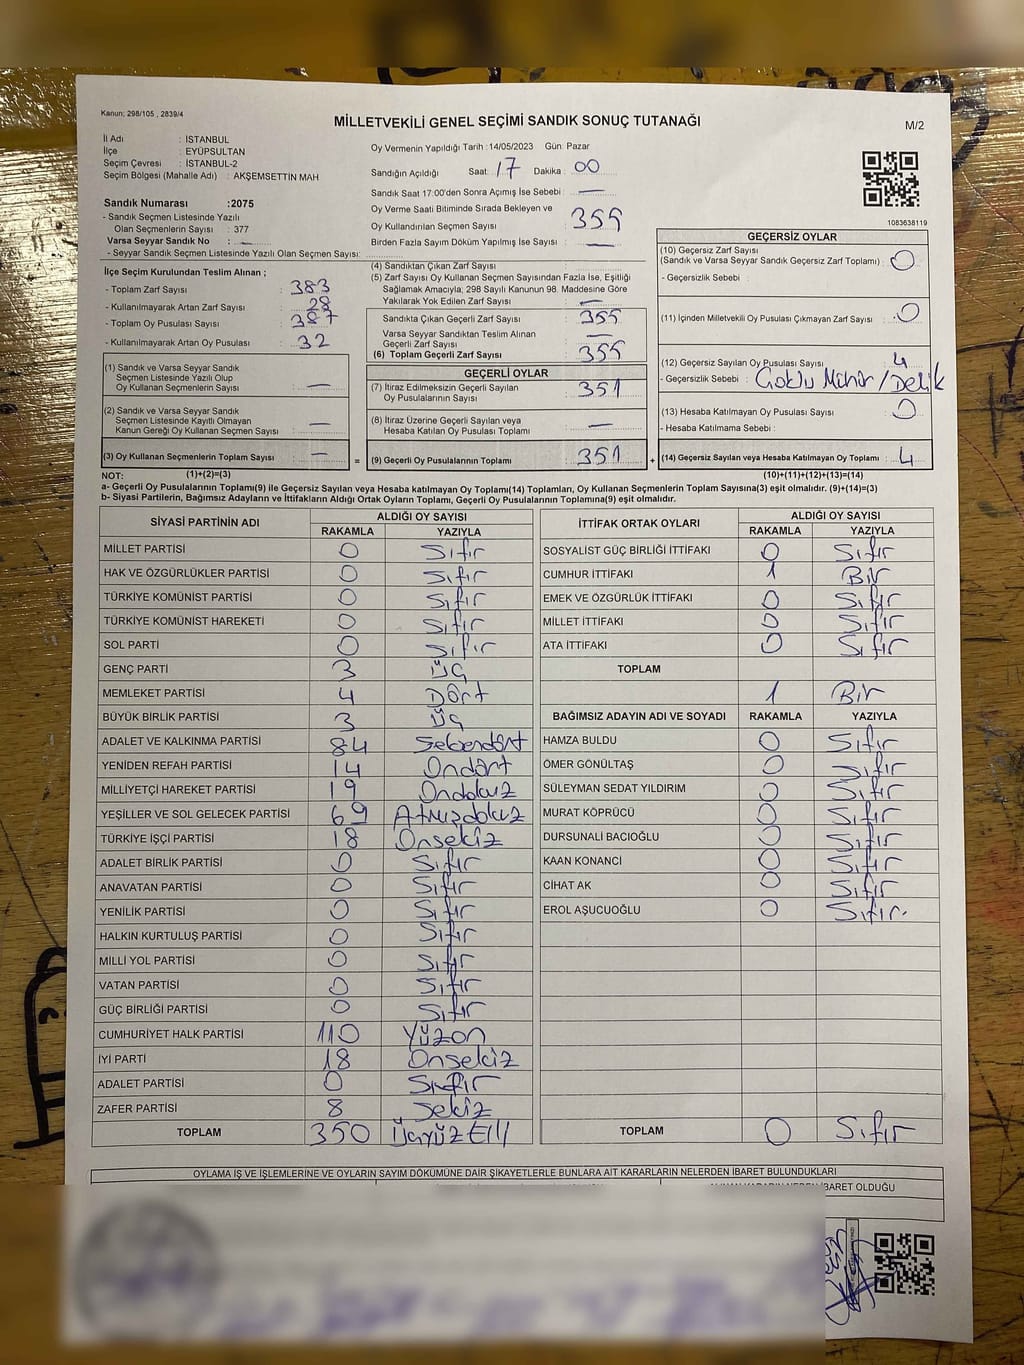 Kanun; 298/105 , 2839/4
MİLLETVEKİLİ GENEL SEÇİMİ SANDIK SONUÇ TUTANAĞI
M/2
İl Adı : İSTANBUL
İlçe : EYÜPSULTAN
Seçim Çevresi : İSTANBUL-2
Seçim Bölgesi (Mahalle Adı) : AKŞEMSETTİN MAH
Sandık Numarası : 2075
- Sandık Seçmen Listesinde Yazılı
Olan Seçmenlerin Sayısı : 377
Varsa Seyyar Sandık No : —
- Seyyar Sandık Seçmen Listesinde Yazılı Olan Seçmen Sayısı:
Oy Vermenin Yapıldığı Tarih : 14/05/2023 Gün: Pazar
Sandığın Açıldığı Saat : 17 Dakika : 00
Sandık Saat 17:00'den Sonra Açımış İse Sebebi : —
Oy Verme Saati Bitiminde Sırada Bekleyen ve
Oy Kullandırılan Seçmen Sayısı : 355
Birden Fazla Sayım Döküm Yapılmış İse Sayısı : —
1083638119
İlçe Seçim Kurulundan Teslim Alınan ;
- Toplam Zarf Sayısı : 383
- Kullanılmayarak Artan Zarf Sayısı : 28
- Toplam Oy Pusulası Sayısı : 387
- Kullanılmayarak Artan Oy Pusulası : 32
(1) Sandık ve Varsa Seyyar Sandık
Seçmen Listesinde Yazılı Olup
Oy Kullanan Seçmenlerin Sayısı : —
(2) Sandık ve Varsa Seyyar Sandık
Seçmen Listesinde Kayıtlı Olmayan
Kanun Gereği Oy Kullanan Seçmen Sayısı : —
(3) Oy Kullanan Seçmenlerin Toplam Sayısı : —
(1)+(2)=(3)
(4) Sandıktan Çıkan Zarf Sayısı :
(5) Zarf Sayısı Oy Kullanan Seçmen Sayısından Fazla İse, Eşitliği
Sağlamak Amacıyla; 298 Sayılı Kanunun 98. Maddesine Göre
Yakılarak Yok Edilen Zarf Sayısı : —
Sandıkta Çıkan Geçerli Zarf Sayısı : 355
Varsa Seyyar Sandıktan Teslim Alınan
Geçerli Zarf Sayısı : —
(6) Toplam Geçerli Zarf Sayısı : 355
GEÇERLİ OYLAR
(7) İtiraz Edilmeksizin Geçerli Sayılan
Oy Pusulalarının Sayısı : 351
(8) İtiraz Üzerine Geçerli Sayılan veya
Hesaba Katılan Oy Pusulası Toplamı : —
= (9) Geçerli Oy Pusulalarının Toplamı : 351 +
GEÇERSİZ OYLAR
(10) Geçersiz Zarf Sayısı
(Sandık ve Varsa Seyyar Sandık Geçersiz Zarf Toplamı) : 0
- Geçersizlik Sebebi :
(11) İçinden Milletvekili Oy Pusulası Çıkmayan Zarf Sayısı : 0
(12) Geçersiz Sayılan Oy Pusulası Sayısı : 4
- Geçersizlik Sebebi : Çoklu Mühür/Delik
(13) Hesaba Katılmayan Oy Pusulası Sayısı : 0
- Hesaba Katılmama Sebebi :
(14) Geçersiz Sayılan veya Hesaba Katılmayan Oy Toplamı : 4
(10)+(11)+(12)+(13)=(14)
NOT:
a- Geçerli Oy Pusulalarının Toplamı(9) ile Geçersiz Sayılan veya Hesaba katılmayan Oy Toplamı(14) Toplamları, Oy Kullanan Seçmenlerin Toplam Sayısına(3) eşit olmalıdır. (9)+(14)=(3)
b- Siyasi Partilerin, Bağımsız Adayların ve İttifakların Aldığı Ortak Oyların Toplamı, Geçerli Oy Pusulalarının Toplamına(9) eşit olmalıdır.
SİYASİ PARTİNİN ADI ALDIĞI OY SAYISI
RAKAMLA YAZIYLA
MİLLET PARTİSİ 0 Sıfır
HAK VE ÖZGÜRLÜKLER PARTİSİ 0 Sıfır
TÜRKİYE KOMÜNİST PARTİSİ 0 Sıfır
TÜRKİYE KOMÜNİST HAREKETİ 0 Sıfır
SOL PARTİ 0 Sıfır
GENÇ PARTİ 3 Üç
MEMLEKET PARTİSİ 4 Dört
BÜYÜK BİRLİK PARTİSİ 3 Üç
ADALET VE KALKINMA PARTİSİ 84 Seksendört
YENİDEN REFAH PARTİSİ 14 Ondört
MİLLİYETÇİ HAREKET PARTİSİ 19 Ondokuz
YEŞİLLER VE SOL GELECEK PARTİSİ 69 Atmışdokuz
TÜRKİYE İŞÇİ PARTİSİ 18 Onsekiz
ADALET BİRLİK PARTİSİ 0 Sıfır
ANAVATAN PARTİSİ 0 Sıfır
YENİLİK PARTİSİ 0 Sıfır
HALKIN KURTULUŞ PARTİSİ 0 Sıfır
MİLLİ YOL PARTİSİ 0 Sıfır
VATAN PARTİSİ 0 Sıfır
GÜÇ BİRLİĞİ PARTİSİ 0 Sıfır
CUMHURİYET HALK PARTİSİ 110 Yüzon
İYİ PARTİ 18 Onsekiz
ADALET PARTİSİ 0 Sıfır
ZAFER PARTİSİ 8 Sekiz
TOPLAM 350 Üçyüz Elli
İTTİFAK ORTAK OYLARI ALDIĞI OY SAYISI
RAKAMLA YAZIYLA
SOSYALİST GÜÇ BİRLİĞİ İTTİFAKI 0 Sıfır
CUMHUR İTTİFAKI 1 Bir
EMEK VE ÖZGÜRLÜK İTTİFAKI 0 Sıfır
MİLLET İTTİFAKI 0 Sıfır
ATA İTTİFAKI 0 Sıfır
TOPLAM
1 Bir
BAĞIMSIZ ADAYIN ADI VE SOYADI RAKAMLA YAZIYLA
HAMZA BULDU 0 Sıfır
ÖMER GÖNÜLTAŞ 0 Sıfır
SÜLEYMAN SEDAT YILDIRIM 0 Sıfır
MURAT KÖPRÜCÜ 0 Sıfır
DURSUNALİ BACIOĞLU 0 Sıfır
KAAN KONANCİ 0 Sıfır
CİHAT AK 0 Sıfır
EROL AŞUCUOĞLU 0 Sıfır.
TOPLAM 0 Sıfır
OYLAMA İŞ VE İŞLEMLERİNE VE OYLARIN SAYIM DÖKÜMÜNE DAİR ŞİKAYETLERLE BUNLARA AİT KARARLARIN NELERDEN İBARET BULUNDUKLARI
İBARET OLDUĞU